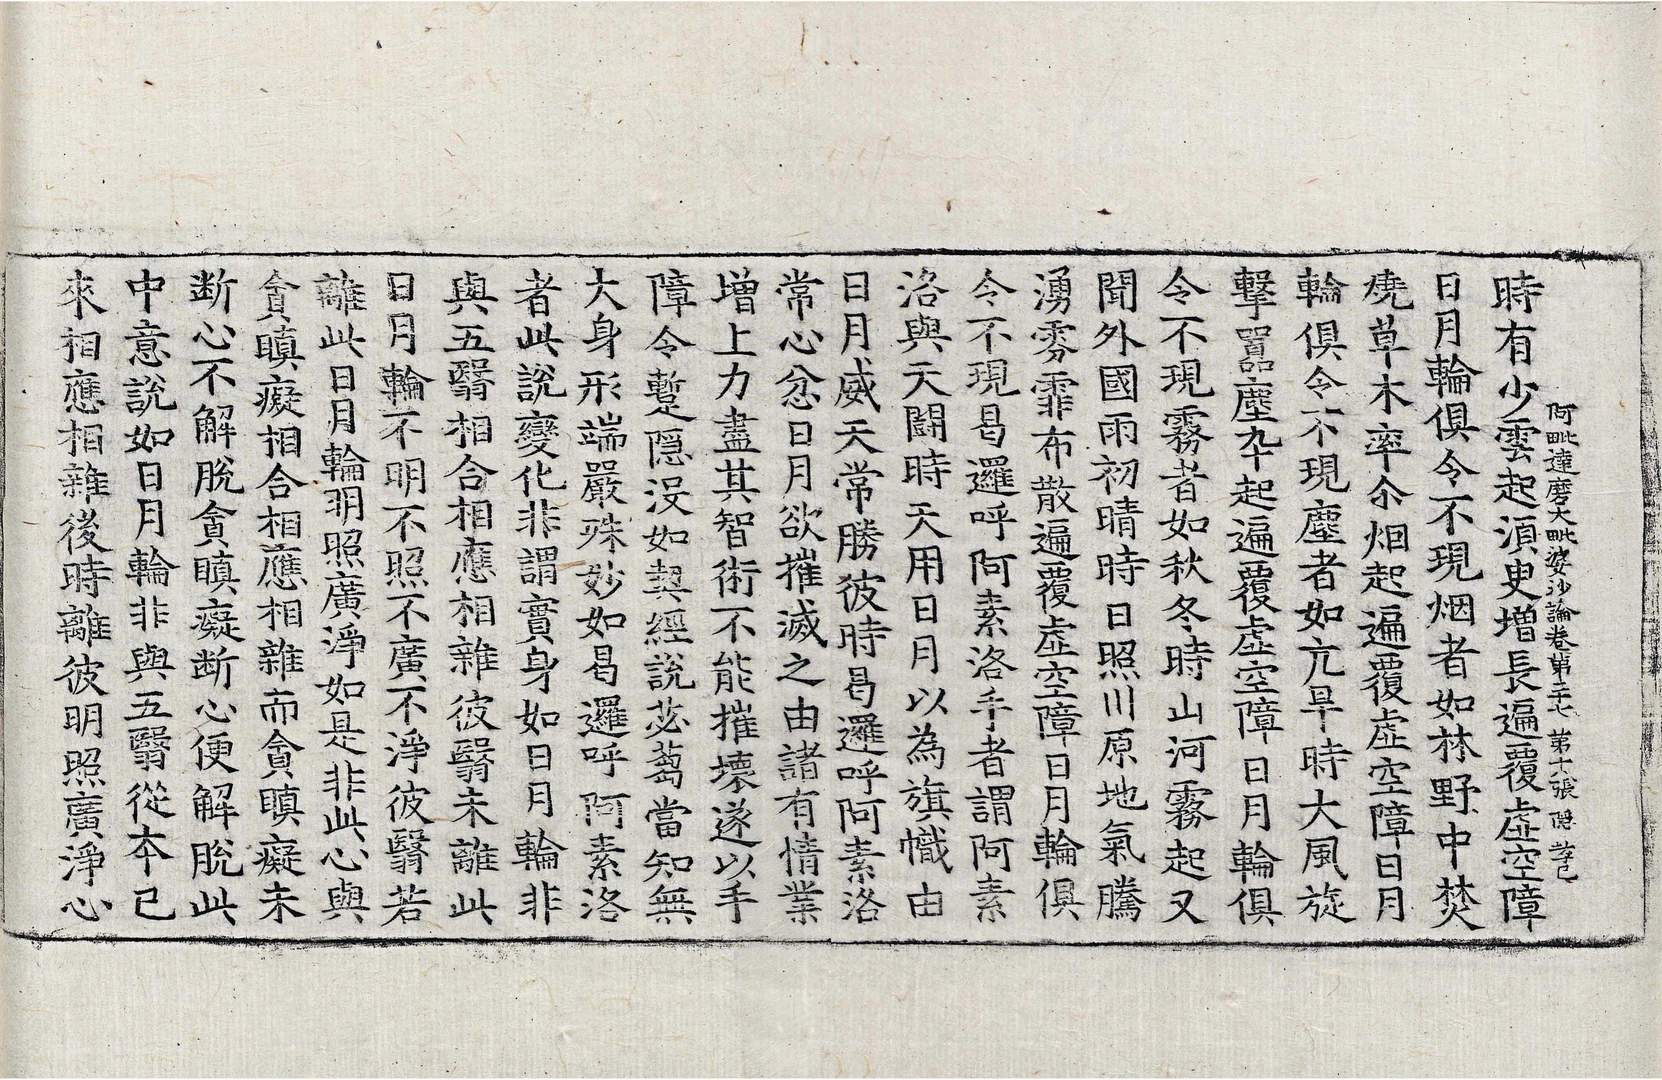 阿毗達磨大毗婆沙論卷第二十七 第十張
時有少雲起湏臾增長遍覆虛空障
日月輪俱令不現烟者如林野中焚
燒草木率尒烟起遍覆虛空障日月
輪俱令不現塵者如亢旱時大風旋
擊嚚塵卒起遍覆虛空障日月輪俱
令不現霧者如秋冬時山河霧起又
聞外國雨初晴時日照川原地氣騰
湧雰霏布散遍覆虛空障日月輪俱
令不現曷邏呼阿素洛手者謂阿素
洛與天鬪時天用日月以為旗幟由
日月威天常勝彼時曷邏呼阿素洛
常心忿日月欲摧滅之由諸有情業
增上力盡其智術不能摧壞遂以手
障令蹔隱沒如契經說苾蒭當知無
大身形端嚴殊妙如曷邏呼阿素洛
者此說變化非謂實身如日月輪非
與五翳相合相應相雜彼翳未離此
日月輪不明不照不廣不淨彼翳若
離此日月輪明照廣淨如是非此心與
貪瞋癡相合相應相雜而貪瞋癡未
断心不解脫貪瞋癡断心便解脫此
中意說如日月輪非與五翳從本已
來相應相雜後時離彼明照廣淨心